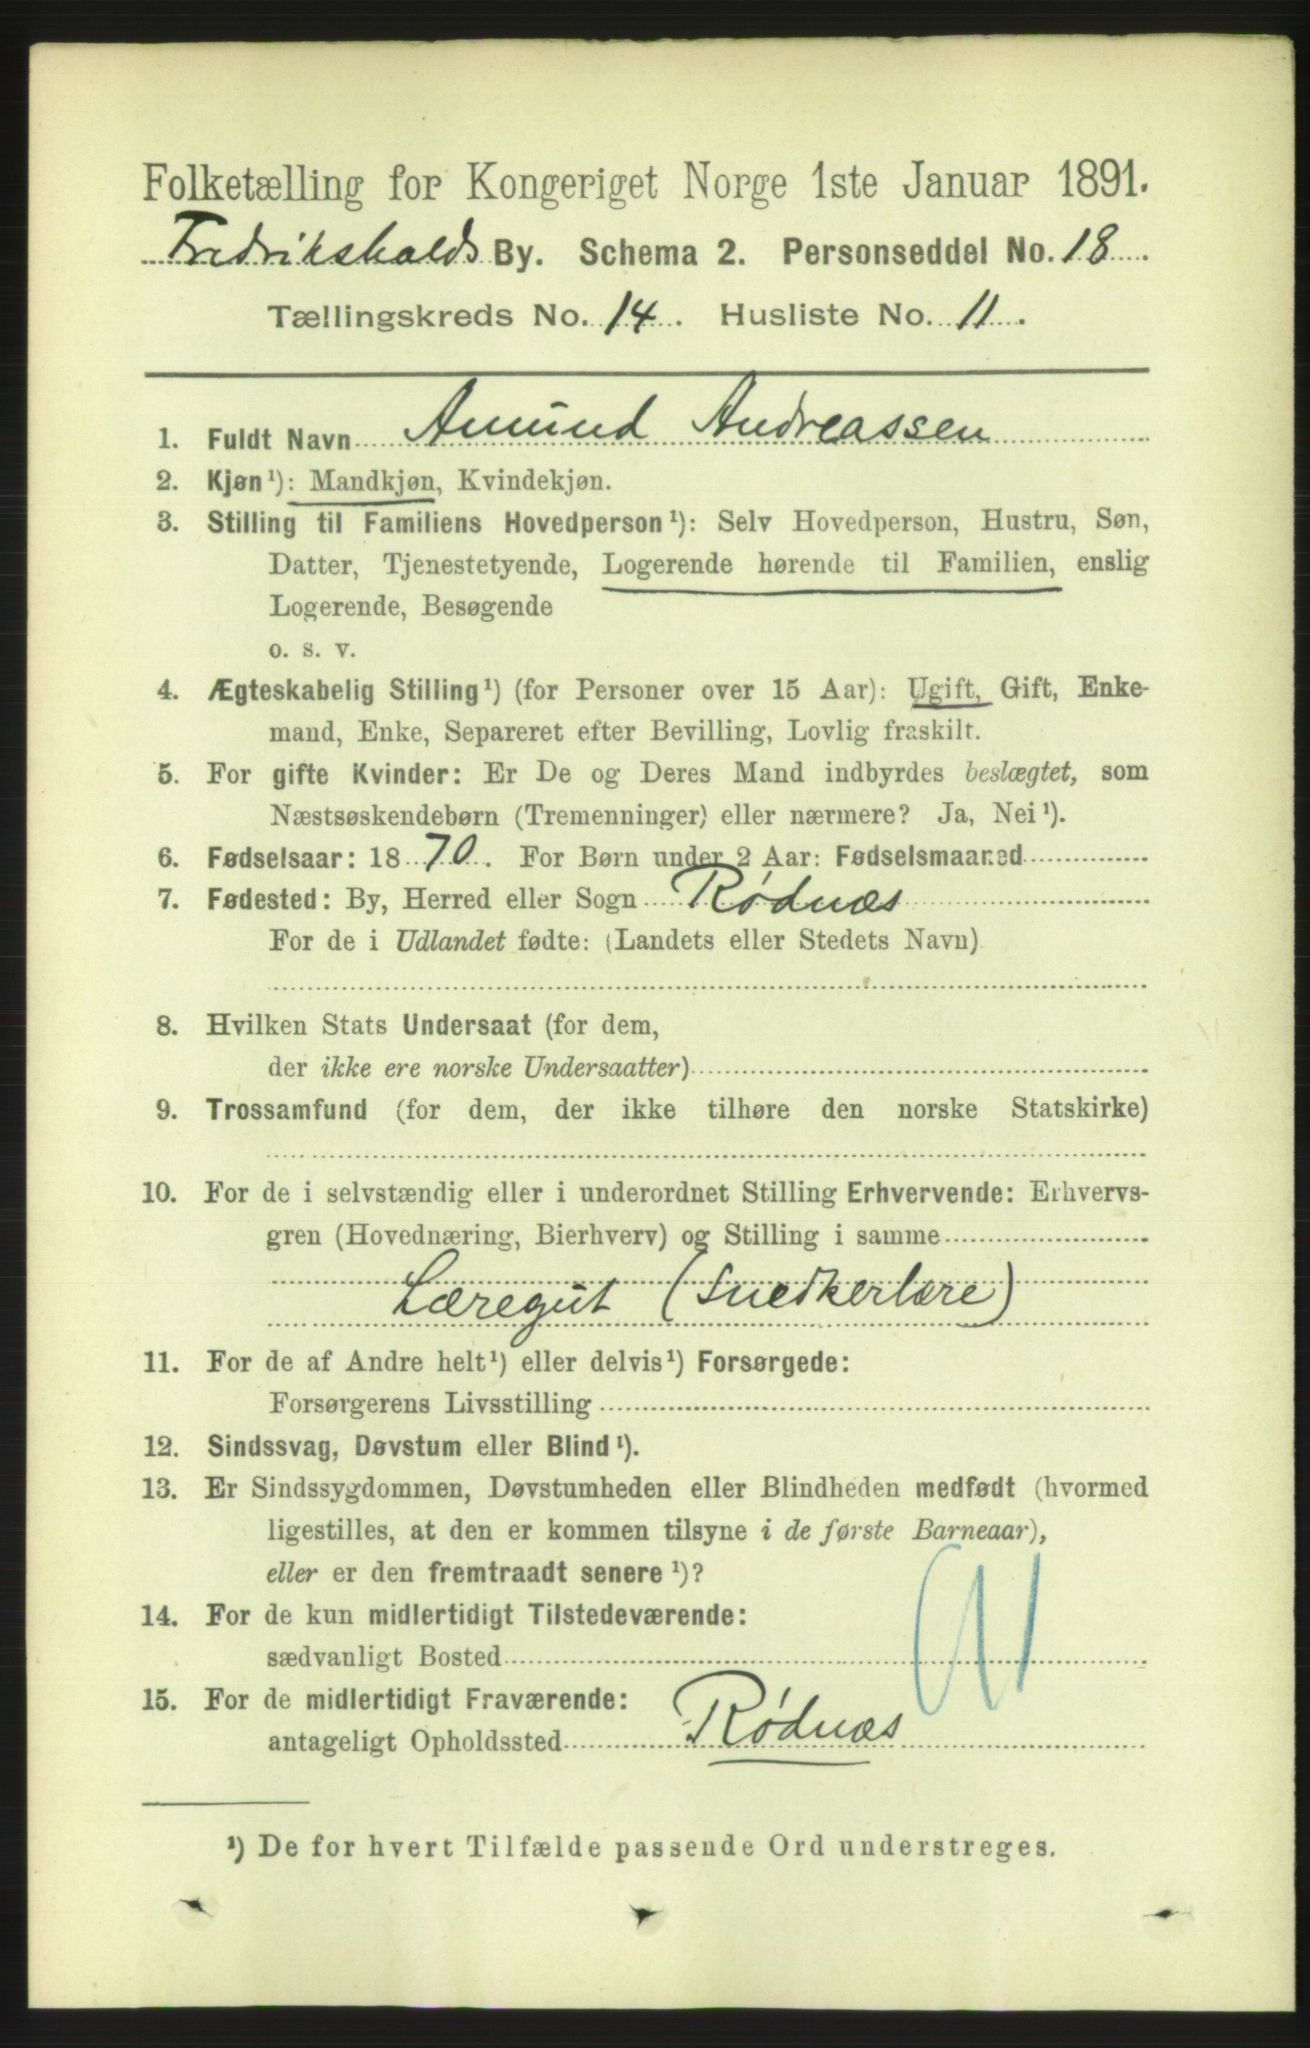 Folketælling for Kongeriget Norge 1ste Januar 1891.
Fredrikshalds By. Schema 2. Personseddel No. 18
Tællingskreds No. 14. Husliste No. 11.
1. Fuldt Navn Amund Andreassen
2. Kjøn¹): Mandkjøn, Kvindekjøn.
3. Stilling til Familiens Hovedperson¹): Selv Hovedperson, Hustru, Søn,
Datter, Tjenestetyende, Logerende hørende til Familien, enslig
Logerende, Besøgende
o. s. v.
4. Ægteskabelig Stilling¹) (for Personer over 15 Aar): Ugift, Gift, Enke-
mand, Enke, Separeret efter Bevilling, Lovlig fraskilt.
5. For gifte Kvinder: Er De og Deres Mand indbyrdes beslægtet, som
Næstsøskendebørn (Tremenninger) eller nærmere? Ja, Nei¹).
6. Fødselsaar: 1870. For Børn under 2 Aar: Fødselsmaaned
7. Fødested: By, Herred eller Sogn Rødnæs
For de i Udlandet fødte: (Landets eller Stedets Navn)
8. Hvilken Stats Undersaat (for dem,
der ikke ere norske Undersaatter)
9. Trossamfund (for dem, der ikke tilhøre den norske Statskirke)
10. For de i selvstændig eller i underordnet Stilling Erhvervende: Erhvervs-
gren (Hovednæring, Bierhverv) og Stilling i samme
Læregut (Snedkerlære)
11. For de af Andre helt¹) eller delvis¹) Forsørgede:
Forsørgerens Livsstilling
12. Sindssvag, Døvstum eller Blind¹).
13. Er Sindssygdommen, Døvstumheden eller Blindheden medfødt (hvormed
ligestilles, at den er kommen tilsyne i de første Barneaar),
eller er den fremtraadt senere¹)?
14. For de kun midlertidigt Tilstedeværende:
sædvanligt Bosted
15. For de midlertidigt Fraværende:
antageligt Opholdssted Rødnæs
¹) De for hvert Tilfælde passende Ord understreges.